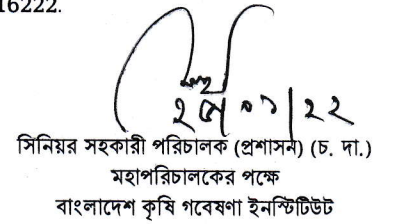 16222.
সিনিয়র সহকারী পরিচালক (প্রশাসন) (চ. দা.)
মহাপরিচালকের পক্ষে
বাংলাদেশ কৃষি গবেষণা ইনস্টিটিউট